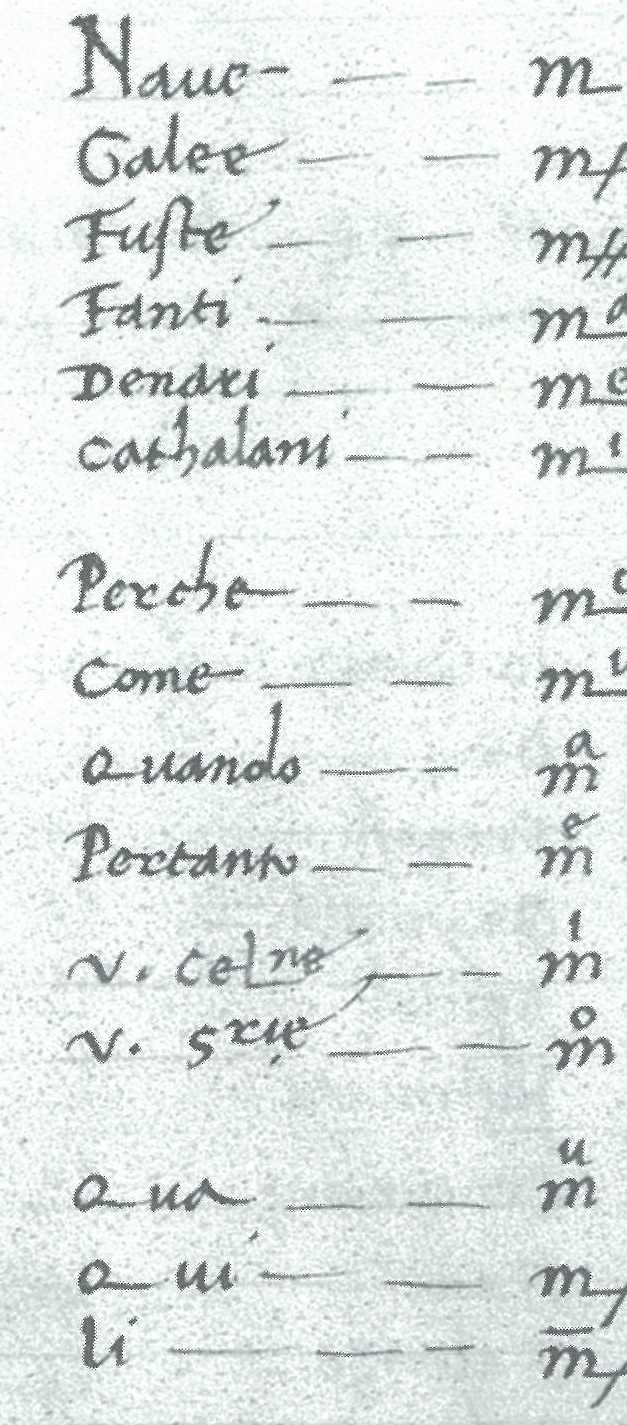 Naue — — m
Galee — — m
Fuste — — m
Fanti — — m a
Denari — — m e
Cathalani — — m i
Perche — — m o
Come — — m u
Quando — — m a
Pertanto — — m e
V. Celne — — m i
V. Srie — — m o
Qua — — m u
Qui — — m
li — — — m